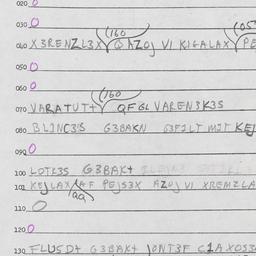 020 0
030 0
(160 (05
040 X3RENZL3X QAZOJ VI KIGALAX PE
050 0
060 0
(160
070 VARATUT+ QFGL VAREN3K3S
080 BLINC3'S G3BAKN G3FILT MIT KEJ
090 0
100 LOTK3S G3BAK+
101 KEJLAX AF PEJS3X AZOJ VI XREMZLA
110 0
120 0
130 FLUSD+ G3BAK+ JONT3F C1A XOS3